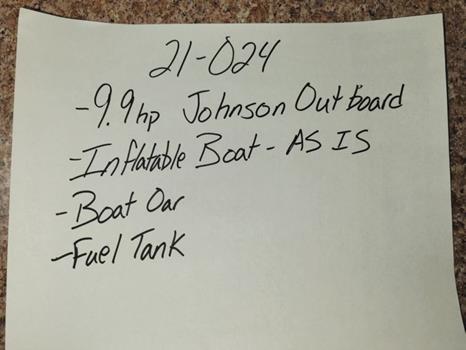 21-024
-9.9hp Johnson Outboard
-Inflatable Boat - AS IS
-Boat Oar
-Fuel Tank